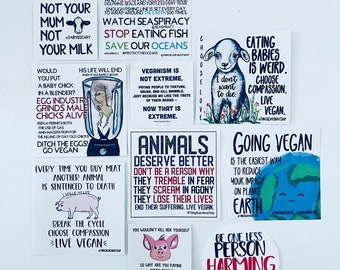 NOT YOUR
MUM
NOT
YOUR MILK
WATCH SEASPIRACY
STOP EATING FISH
SAVE OUR OCEANS
EATING
BABIES
IS WEIRD.
CHOOSE
COMPASSION.
LIVE
VEGAN.
I don't
want
to die
WOULD
YOU PUT
A BABY CHICK
IN A
BLENDER?
HIS LIFE WILL END
EGG INDUSTRY
GRINDS MALE
CHICKS ALIVE
DITCH THE EGGS!
GO VEGAN
VEGANISM IS
NOT EXTREME.
PAYING PEOPLE TO TORTURE,
ABUSE, AND KILL ANIMALS,
JUST BECAUSE WE LIKE THE TASTE
OF THEIR BODIES -
NOW THAT IS
EXTREME.
ANIMALS
DESERVE BETTER
DON'T BE A REASON WHY
THEY TREMBLE IN FEAR
THEY SCREAM IN AGONY
THEY LOSE THEIR LIVES
END THEIR SUFFERING. LIVE VEGAN.
GOING VEGAN
IS THE EASIEST WAY
TO REDUCE
YOUR IMPACT
ON PLANET
EARTH
EVERY TIME YOU BUY MEAT
ANOTHER ANIMAL
IS SENTENCED TO DEATH
VALUE LIFE
BREAK THE CYCLE
CHOOSE COMPASSION
LIVE VEGAN
YOU WOULDN'T KILL HER YOURSELF
SO WHY ARE YOU PAYING
BE ONE LESS
PERSON
HARMING